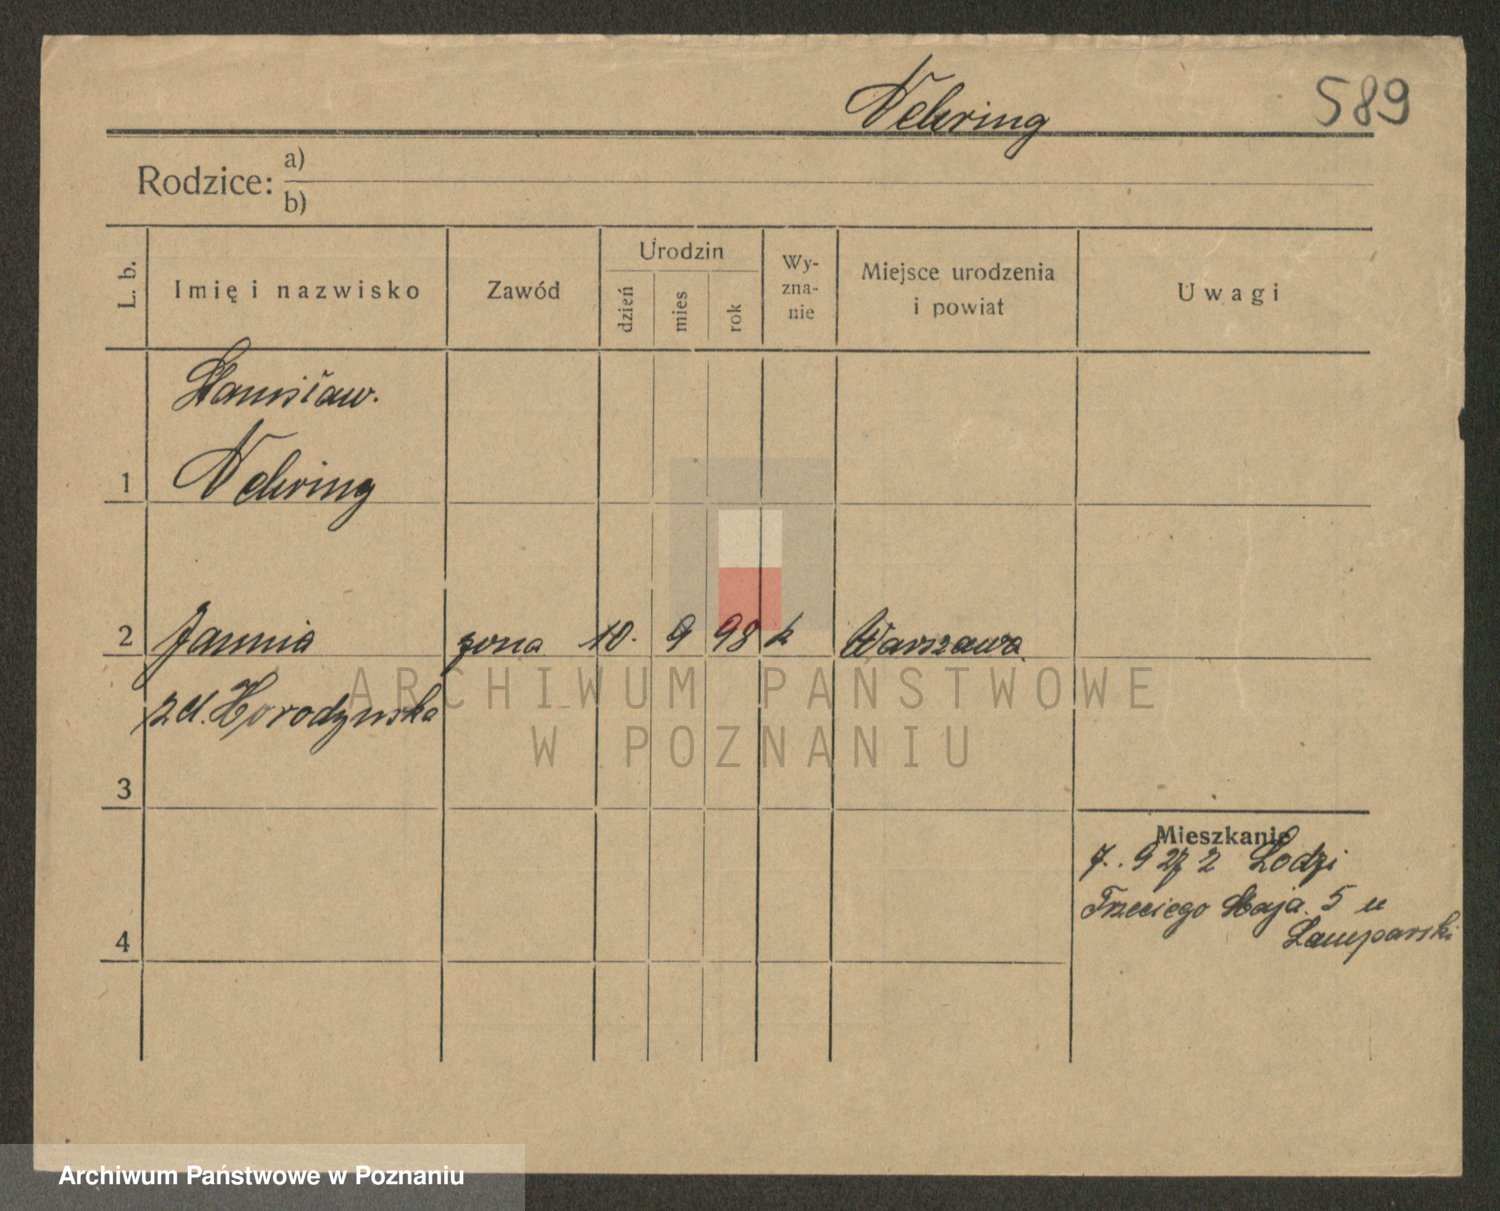 Nehring 589
Rodzice: a)
b)
L. b. Imię i nazwisko Zawód Urodzin dzień mies rok Wy-zna-nie Miejsce urodzenia i powiat Uwagi
Stanisław.
1 Nehring
2 Janina żona 10. 9 98 k Warszawa
zd. Horodyńska
3
Mieszkanie
7. 9 27 z Łodzi
Trzeciego Maja. 5 u
Lamparski
4
ARCHIWUM PAŃSTWOWE
W POZNANIU
Archiwum Państwowe w Poznaniu